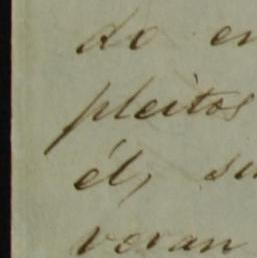 do en
pleitos
él, su
veran